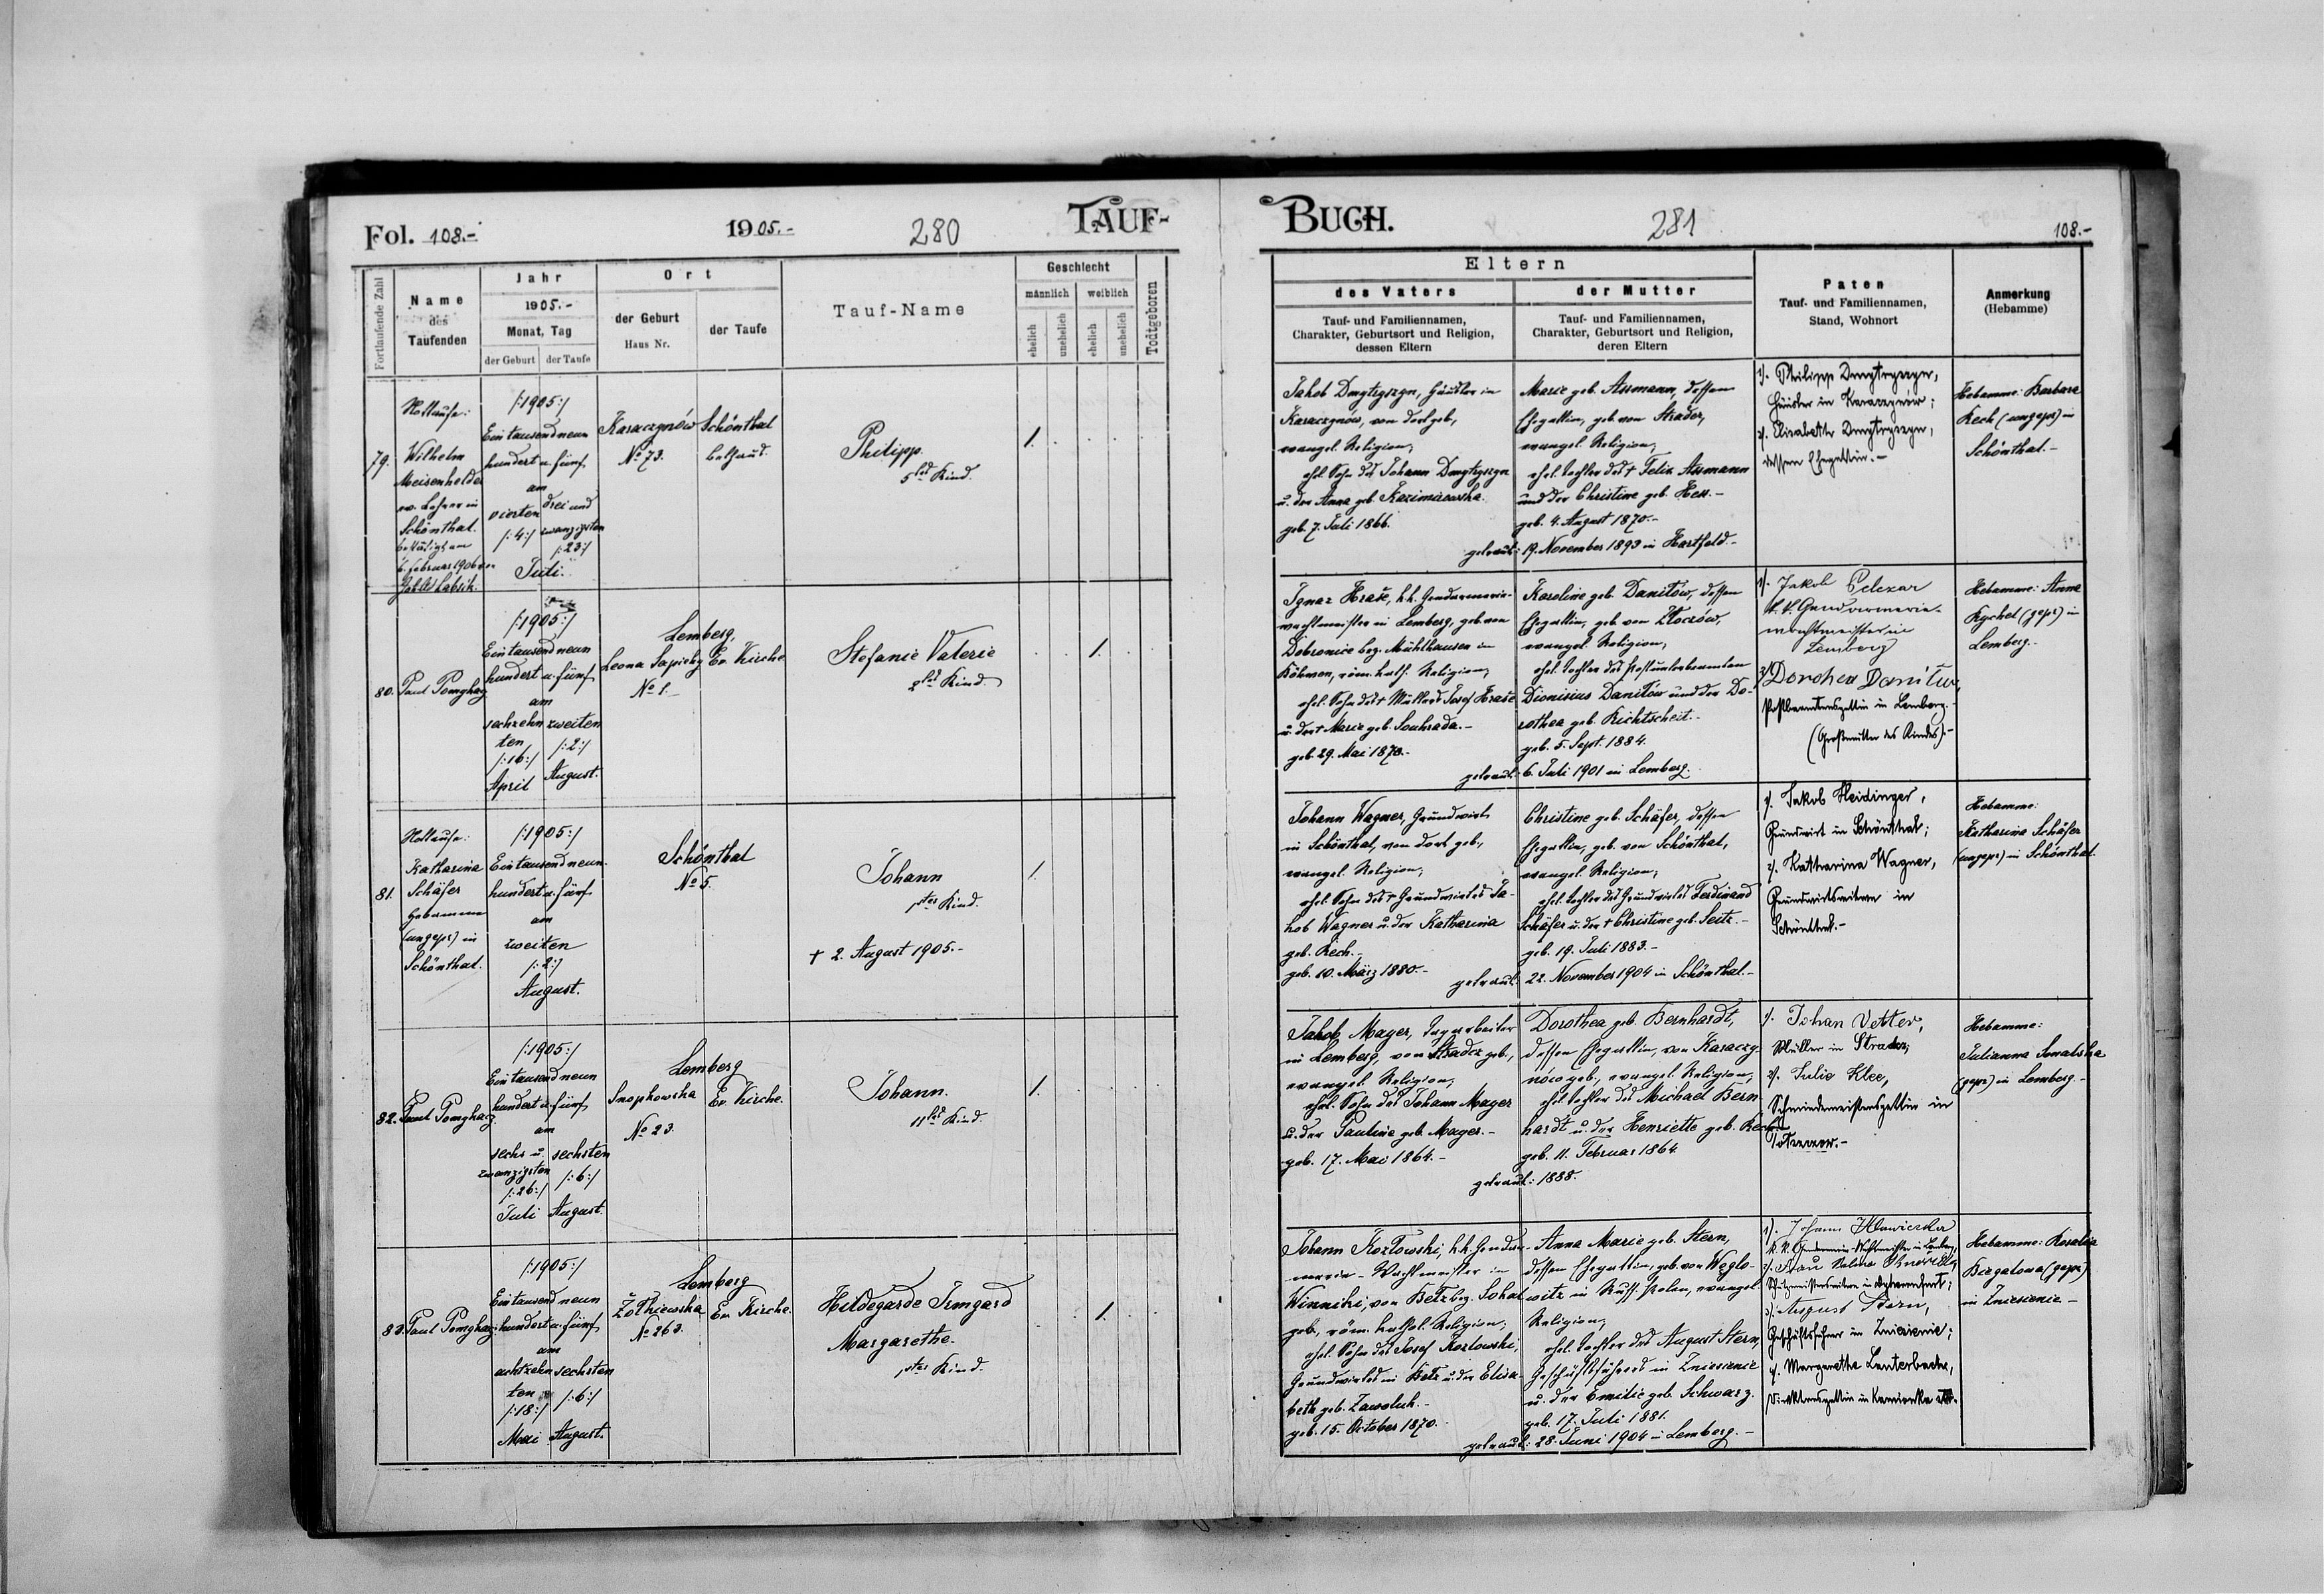 Fol. 108.-
1905.-
280
TAUF-
BUCH.
281
108.-
Fortlaufende Zahl
Name
des
Taufenden
Jahr
1905.-
Monat, Tag
der Geburt
der Taufe
Ort
der Geburt
Haus Nr.
der Taufe
Tauf-Name
Geschlecht
männlich
weiblich
ehelich
unehelich
ehelich
unehelich
Todtgeboren
Eltern
des Vaters
Tauf- und Familiennamen,
Charakter, Geburtsort und Religion,
dessen Eltern
der Mutter
Tauf- und Familiennamen,
Charakter, Geburtsort und Religion,
deren Eltern
Paten
Tauf- und Familiennamen,
Stand, Wohnort
Anmerkung
(Hebamme)
79.
Nottaufe:
Wilhelm
Meisenhelder
ev. Lehrer in
Schönthal.
bestätigt am
6. Februar 1906
/:1905:/
Eintausendneun
hundert u. fünf
am
vierten
/:4:/
drei und
zwanzigsten
/:23:/
Juli.
Karaczynów
No 73.
Schönthal
Bethaus.
Philipp.
5tes Kind.
1.
Jakob Dmytryszyn, Häusler in
Karaczynów, von dort geb.,
evangel. Religion;
ehel. Sohn des Johann Dmytryszyn
u. der Anna geb. Kazimirowska.
geb. 7. Juli 1866.
Marie geb. Assmann, dessen
Ehegattin, geb. von Stradcz,
evangel. Religion;
ehel. Tochter des + Felix Assmann
und der Christine geb. Hess.-
geb. 4. August 1870.-
getraut: 19. November 1893 in Hartfeld.-
1). Philipp Dmytryszyn,
Häusler in Karaczynów;
2). Elisabeth Dmytryszyn,
dessen Ehegattin.-
Hebamme: Barbara
Kech (ungepr) in
Schönthal.-
80.
Paul Pomykacz
/:1905:/
Eintausendneun
hundert u. fünf
am
sechzehn
ten
/:16:/
April
zweiten
/:2:/
August.
Lemberg,
Leona Sapiehy
No 1.-
Ev. Kirche
Stefanie Valerie
2tes Kind.
1.
Ignaz Hraše, k.k. Gendarmerie-
wachtmeister in Lemberg, geb. von
Dobronice bez. Mühlhausen in
Böhmen, röm. kath. Religion;
ehel. Sohn des + Müllers Josef Hraše
u. der + Marie geb. Souhrada.-
geb. 29. Mai 1873.-
Karoline geb. Daniłów, dessen
Ehegattin, geb. von Złoczów,
evangel. Religion;
ehel. Tochter des Postunterbeamten
Dionisius Daniłów und der Do-
rothea geb. Richtscheit.-
geb. 5. Sept. 1884.
getraut: 6. Juli 1901 in Lemberg.
1). Jakob Pelczar
k.k. Gendarmerie-
wachtmeister in
Lemberg
2) Dorothea Daniłów,
Postbeamtensgattin in Lemberg.-
(Großmutter des Kindes).-
Hebamme: Anna
Kychel (gepr) in
Lemberg.
81.
Nottaufe:
Katharina
Schäfer
Hebamme
(ungepr) in
Schönthal.
/:1905:/
Eintausendneun-
hundert u. fünf
am
zweiten
/:2:/
August.
Schönthal
No 5.
Johann
1tes Kind.
+ 2. August 1905.-
1.
Johann Wagner, Grundwirt
in Schönthal, von dort geb.,
evangel. Religion;
ehel. Sohn des + Grundwirtes Ja-
kob Wagner u. der Katharina
geb. Kech.-
geb. 10. März 1880.-
Christine geb. Schäfer, dessen
Ehegattin, geb. von Schönthal,
evangel. Religion;
ehel. Tochter des Grundwirtes Ferdinand
Schäfer u. der + Christine geb. Seitz.-
geb. 19. Juli 1883.-
getraut: 22. November 1904 in Schönthal.-
1). Jakob Heidinger,
Grundwirt in Schönthal;
2). Katharina Wagner,
Grundwirtswitwe in
Schönthal.-
Hebamme:
Katharina Schäfer
(ungepr) in Schönthal.
82.
Paul Pomykacz.
/:1905:/
Eintausendneun
hundert u. fünf
am
sechs u.
zwanzigsten
/:26:/
Juli
sechsten
/:6:/
August.
Lemberg
Snopkowska
No 23.
Ev. Kirche.
Johann.
11tes Kind.
1.
Jakob Mayer, Tagarbeiter
in Lemberg, von Stradcz geb.,
evangel. Religion;
ehel. Sohn des Johann Mayer
u. der Pauline geb. Mayer.-
geb. 17. Mai 1864.-
Dorothea geb. Bernhardt,
dessen Ehegattin, von Karaczy-
nów geb., evangel. Religion;
ehel. Tochter des Michael Bern-
hardt u. der Henriette geb.
geb. 11. Februar 1864
getraut: 1888.
1). Johan Vetter,
Müller in Stradcz;
2). Julie Klee,
Schmiedemeistersgattin in
Hebamme:
Julianna Smalska
(gepr) in Lemberg.-
83.
Paul Pomykacz.
/:1905:/
Eintausendneun
hundert u. fünf
am
achtzehn
ten
/:18:/
Mai
sechsten
/:6:/
August.
Lemberg
Żołkiewska
No 263.
Ev. Kirche.
Hildegarde Irmgard
Margarethe.
1tes Kind.
1.
Johann Kozłowski, k.k. Gendar-
merie-Wachtmeister in
Winniki, von Bełz bez. Sokal
geb., röm. kathol. Religion;
ehel. Sohn des Josef Kozłowski,
Grundwirtes in Bełz u. der Elisa-
beth geb. Zawoluk.-
geb. 15. October 1870.-
Anna Marie geb. Stern,
dessen Ehegattin, geb. von Weglo-
witz in Russ. Polen, evangel.
Religion;
ehel. Tochter des August Stern,
Geschäftsführers in Zniesienie
u. der Emilie geb. Schwarz.
geb. 17. Juli 1881.
getraut: 28. Juni 1904 in Lemberg.-
1). Johann
k.k. Gendarmerie-Wachtmeister in Lemberg,
2). Frau
3). August Stern,
Geschäftsführer in Zniesienie;
4). Margarethe Lauterbach,
Hebamme: Rosalia
Biegalowa (gepr)
in Zniesienie.-